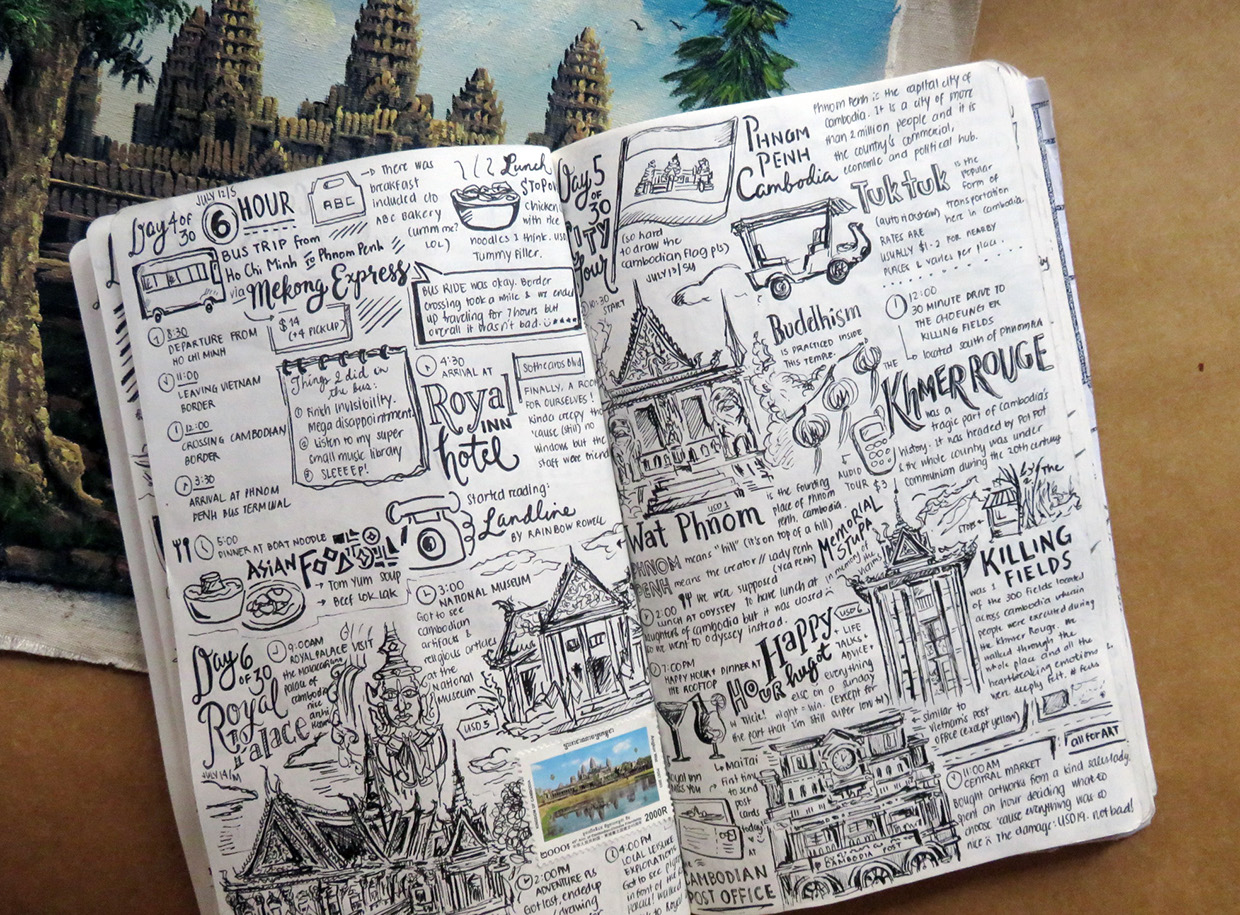 JULY 12/S
Day 4 of
30
6 HOUR
BUS TRIP from
Ho Chi Minh to Phnom Penh
via Mekong Express
$14
(+4 PICKUP)
ABC
→ there was
breakfast
included c/o
ABC Bakery
(umm me?
LOL)
Lunch
$TOPOV
chicken
with rice
noodles I think.
Tummy filler.
BUS RIDE was okay. Border
crossing took a while & we ended
up traveling for 7 hours but
overall it wasn't bad.
8:30
DEPARTURE FROM
HO CHI MINH
11:00
LEAVING VIETNAM
BORDER
12:00
CROSSING CAMBODIAN
BORDER
3:30
ARRIVAL AT PHNOM
PENH BUS TERMINAL
Things I did in
the bus:
① Finish Invisibility.
Mega disappointment.
② Listen to my super
small music library
③ SLEEEEP!
4:30
ARRIVAL AT
Royal
INN
hotel
Sothearos blvd
FINALLY, A ROOM
FOR OURSELVES!
Kinda creepy
'cause (still) no
window but the
staff were friend
Started reading:
Landline
BY RAINBOW ROWELL
5:00
DINNER AT BOAT NOODLE
ASIAN FOOD
→ Tom Yum Soup
→ Beef Lok Lak
3:00
NATIONAL MUSEUM
Got to see
cambodian
artifacts &
religious articles
at the
National
Museum
USD 5
Day 6
of 30
Royal
Palace
JULY 14/M
9:00AM
ROYAL PALACE VISIT
the
palace of
cambodia
nice
2000R
2:00PM
ADVENTURE PLS
Got lost, ended up
drawing
4:00PM
LOCAL LEISURE
EXPLORATION
Got to see
in front of the
Palace! walked
back to Royal
Day 5
OF
30
CITY
Tour
(so hard
to draw the
cambodian flag pls)
JULY 13/SU
PHNOM
PENH
Cambodia
Phnom Penh is the capital city of
Cambodia. It is a city of more
than 2 million people and it is
the country's commercial,
economic and political hub.
Tuktuk
is the
popular
form of
(auto rickshaw) transportation
here in Cambodia.
RATES ARE
USUALLY $1-2 FOR NEARBY
PLACES & varies per place
10:30
START
Buddhism
IS PRACTICED INSIDE
THIS TEMPLE.
12:00
30 MINUTE DRIVE TO
THE CHOEUNG ER
KILLING FIELDS
located south of Phnom Penh
THE
KHMER ROUGE
was a
tragic part of Cambodia's
history. It was headed by Pol Pot
& the whole country was under
communism during the 20th century
AUDIO
TOUR $3
USD 1
Wat Phnom
is the founding
place of Phnom
Penh, Cambodia.
PHNOM means "hill" (it's on top of a hill)
PENH means the creator // Lady Penh
(Yea Penh)
2:00
we were supposed
to have lunch at
daughters of cambodia but it was closed
so we went to odyssey instead.
LUNCH AT ODYSSEY
MEMORIAL
STUPA
in memory of
the
victims
STORE
The
KILLING
FIELDS
was 1
of the 300 fields located
across cambodia wherein
people were executed during
the Khmer Rouge. We
walked through the
whole place and all the
heartbreaking emotions
were deeply felt. # feels
7:00PM
HAPPY HOUR & DINNER AT
THE ROOFTOP
Happy
HOUR hugot
USD 6
+ LIFE
TALKS +
ADVICE +
everything
else on a sunday
night = win. (except for
the part that I'm still a beer low to)
MaiTai
First time
to send
post
cards
today
CAMBODIAN
POST OFFICE
CAMBODIA POST
← similar to
Vietnam's Post
Office (except yellow)
all for ART
11:00AM
CENTRAL MARKET
Bought artworks from a kind saleslady.
Spent an hour deciding what to
choose 'cause everything was so
nice. The damage: USD 19. not bad!